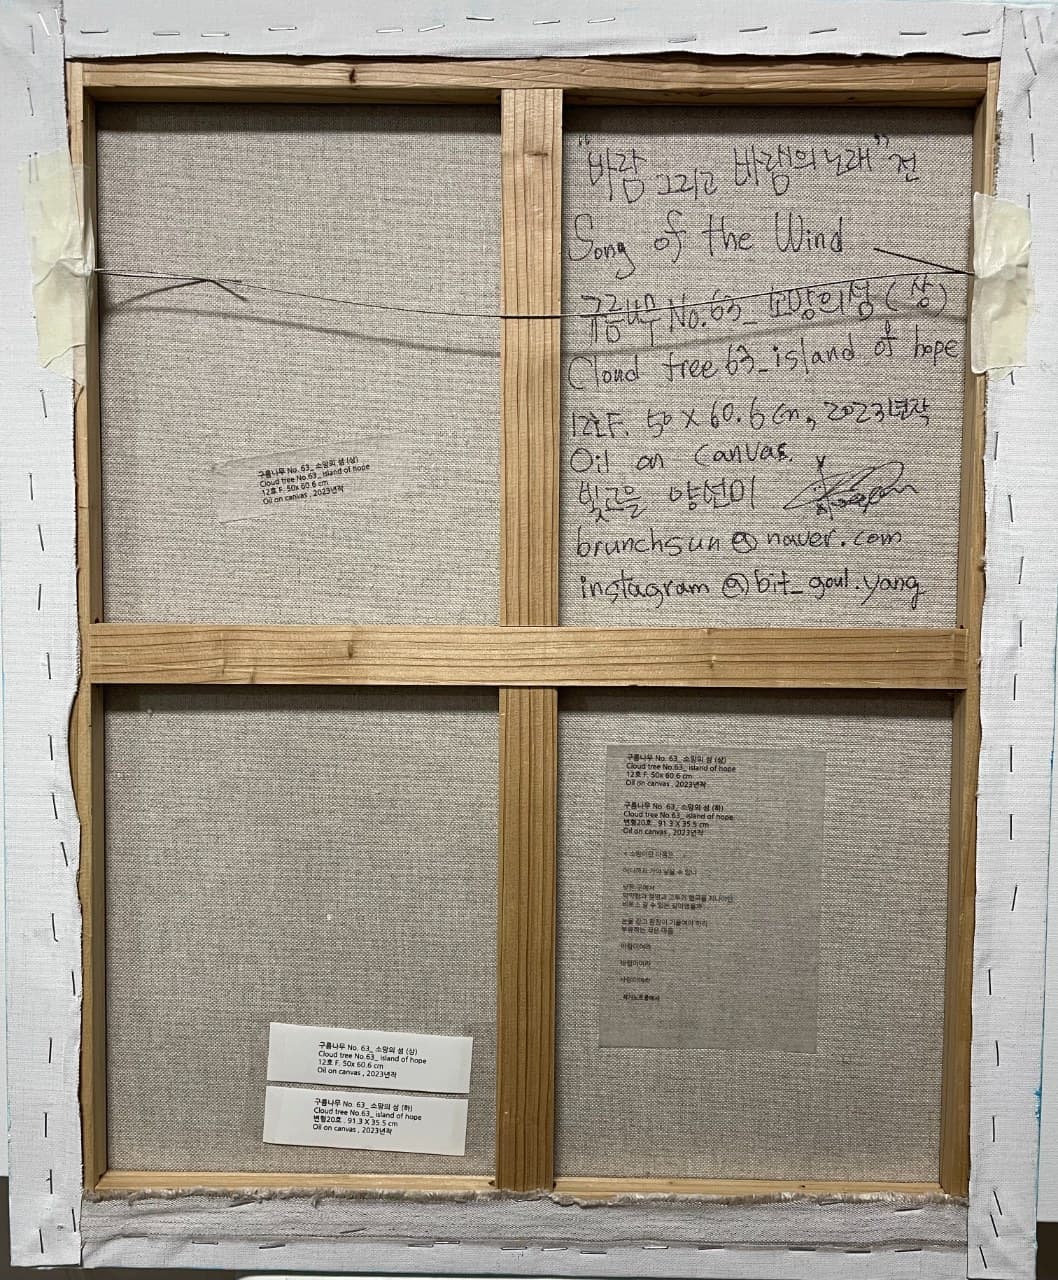 "바람 그리고 바램의 노래" 전
Song of the Wind
구름나무 No.63_ 소망의 섬 (상)
Cloud tree 63_island of hope
12호F. 50 X 60.6 cm, 2023년작
Oil on canvas.
빛고을 양선미
brunchsun@naver.com
instagram @bit_goul.yang
구름나무 No. 63_ 소망의 섬 (상)
Cloud tree No.63_ island of hope
12호 F. 50x 60.6 cm
Oil on canvas , 2023년작
구름나무 No. 63_ 소망의 섬 (상)
Cloud tree No.63_ island of hope
12호 F. 50x 60.6 cm
Oil on canvas , 2023년작
구름나무 No. 63_ 소망의 섬 (하)
Cloud tree No.63_ island of hope
변형20호 . 91.3 X 35.5 cm
Oil on canvas , 2023년작
어디까지 가야 닿을 수 있나
낮은 곳에서
눈을 감고 한참이 기울여야 하리
부유하는 작은 마음
바람이어라
사랑이어라
작가노트중에서
구름나무 No. 63_ 소망의 섬 (상)
Cloud tree No.63_ island of hope
12호 F. 50x 60.6 cm
Oil on canvas , 2023년작
구름나무 No. 63_ 소망의 섬 (하)
Cloud tree No.63_ island of hope
변형20호 . 91.3 X 35.5 cm
Oil on canvas , 2023년작